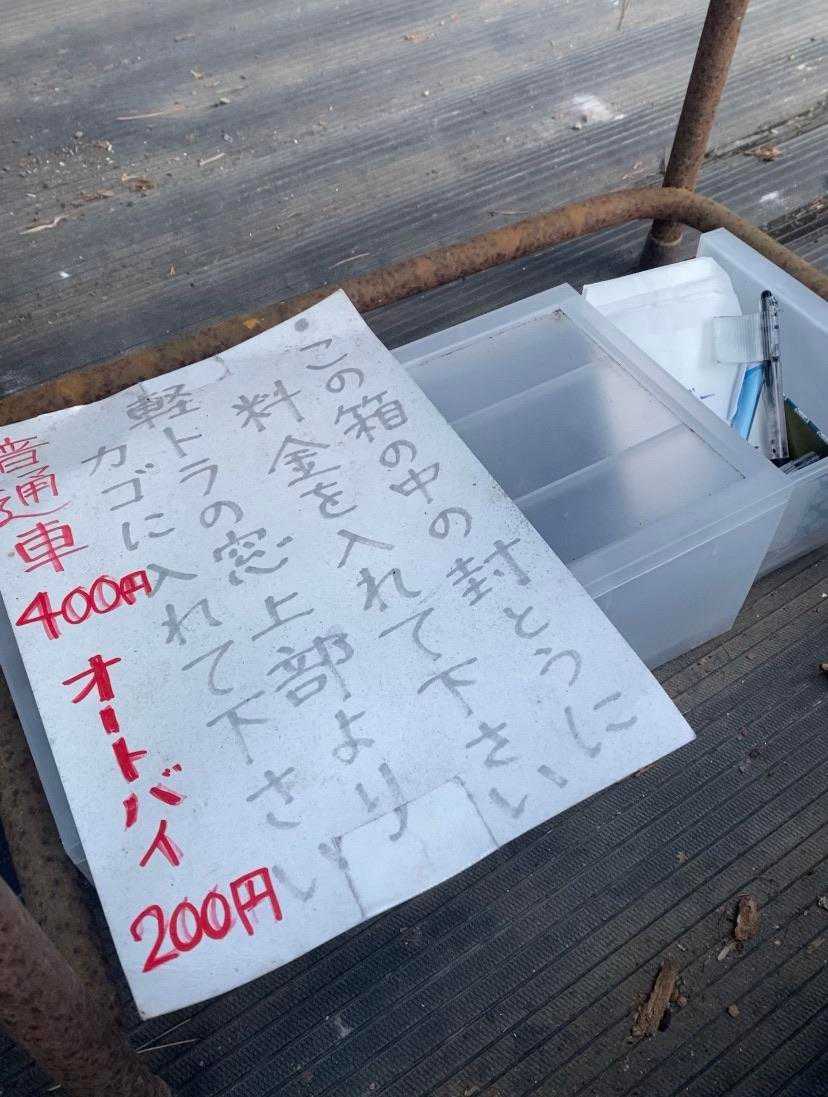 この箱の中の封とうに
料金を入れて下さい
軽トラの窓上部より
カゴに入れて下さい
普通車 400円 オートバイ 200円